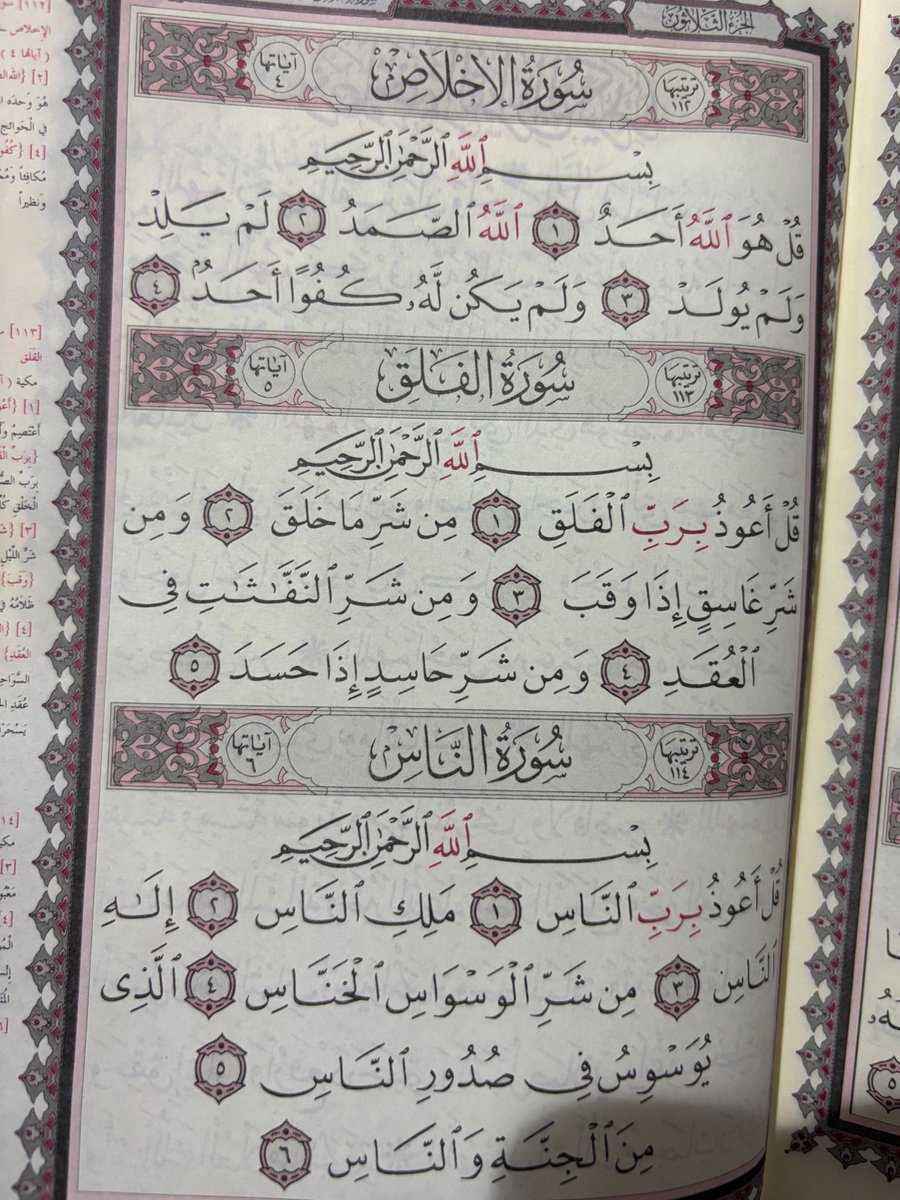 الجزء الثلاثون
ترتيبها ١١٢ سُورَةُ الإِخْلَاصِ آياتها ٤
بِسْمِ ٱللَّهِ ٱلرَّحْمَٰنِ ٱلرَّحِيمِ
قُلْ هُوَ ٱللَّهُ أَحَدٌ ١ ٱللَّهُ ٱلصَّمَدُ ٢ لَمْ يَلِدْ
وَلَمْ يُولَدْ ٣ وَلَمْ يَكُن لَّهُۥ كُفُوًا أَحَدُۢ ٤
ترتيبها ١١٣ سُورَةُ الفَلَقِ آياتها ٥
بِسْمِ ٱللَّهِ ٱلرَّحْمَٰنِ ٱلرَّحِيمِ
قُلْ أَعُوذُ بِرَبِّ ٱلْفَلَقِ ١ مِن شَرِّ مَا خَلَقَ ٢ وَمِن
شَرِّ غَاسِقٍ إِذَا وَقَبَ ٣ وَمِن شَرِّ ٱلنَّفَّٰثَٰتِ فِى
ٱلْعُقَدِ ٤ وَمِن شَرِّ حَاسِدٍ إِذَا حَسَدَ ٥
ترتيبها ١١٤ سُورَةُ النَّاسِ آياتها ٦
بِسْمِ ٱللَّهِ ٱلرَّحْمَٰنِ ٱلرَّحِيمِ
قُلْ أَعُوذُ بِرَبِّ ٱلنَّاسِ ١ مَلِكِ ٱلنَّاسِ ٢ إِلَٰهِ
ٱلنَّاسِ ٣ مِن شَرِّ ٱلْوَسْوَاسِ ٱلْخَنَّاسِ ٤ ٱلَّذِى
يُوَسْوِسُ فِى صُدُورِ ٱلنَّاسِ ٥
مِنَ ٱلْجِنَّةِ وَٱلنَّاسِ ٦